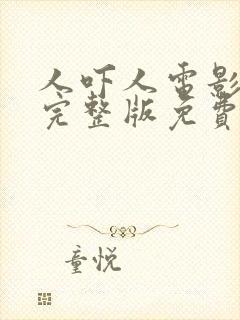 人吓人电影
完整版免費
童悦